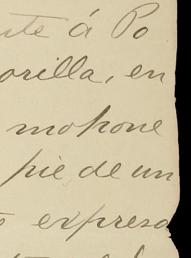 á Po
orilla, en
mokone
pie de un
expresa